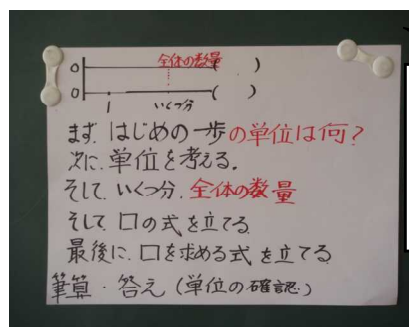 全体の数量
0 ( )
0 ( )
1 いくつ分
まず、はじめの一歩の単位は何？
次に、単位を考える。
そして、いくつ分、全体の数量
そして、口の式を立てる
最後に、口を求める式を立てる
筆算・答え（単位の確認）